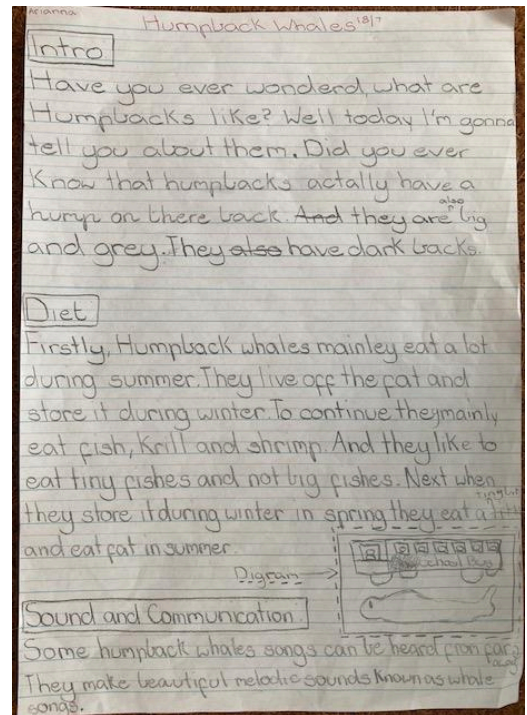 Arianna
Humpback Whales 18/7
Intro
Have you ever wonderd, what are
Humpbacks like? Well today I'm gonna
tell you about them. Did you ever
Know that humpbacks actally have a
hump on there back. And they are also big
and grey. They also have dark backs.
Diet
Firstly, Humpback whales mainley eat a lot
during summer. They live off the fat and
store it during winter. To continue they mainly
eat fish, Krill and shrimp. And they like to
eat tiny fishes and not big fishes. Next when
they store it during winter in spring they eat a
and eat fat in summer.
School Bus
Digram
Sound and Communication.
Some humpback whales songs can be heard from far away
They make beautiful melodic sounds Known as whale
songs.